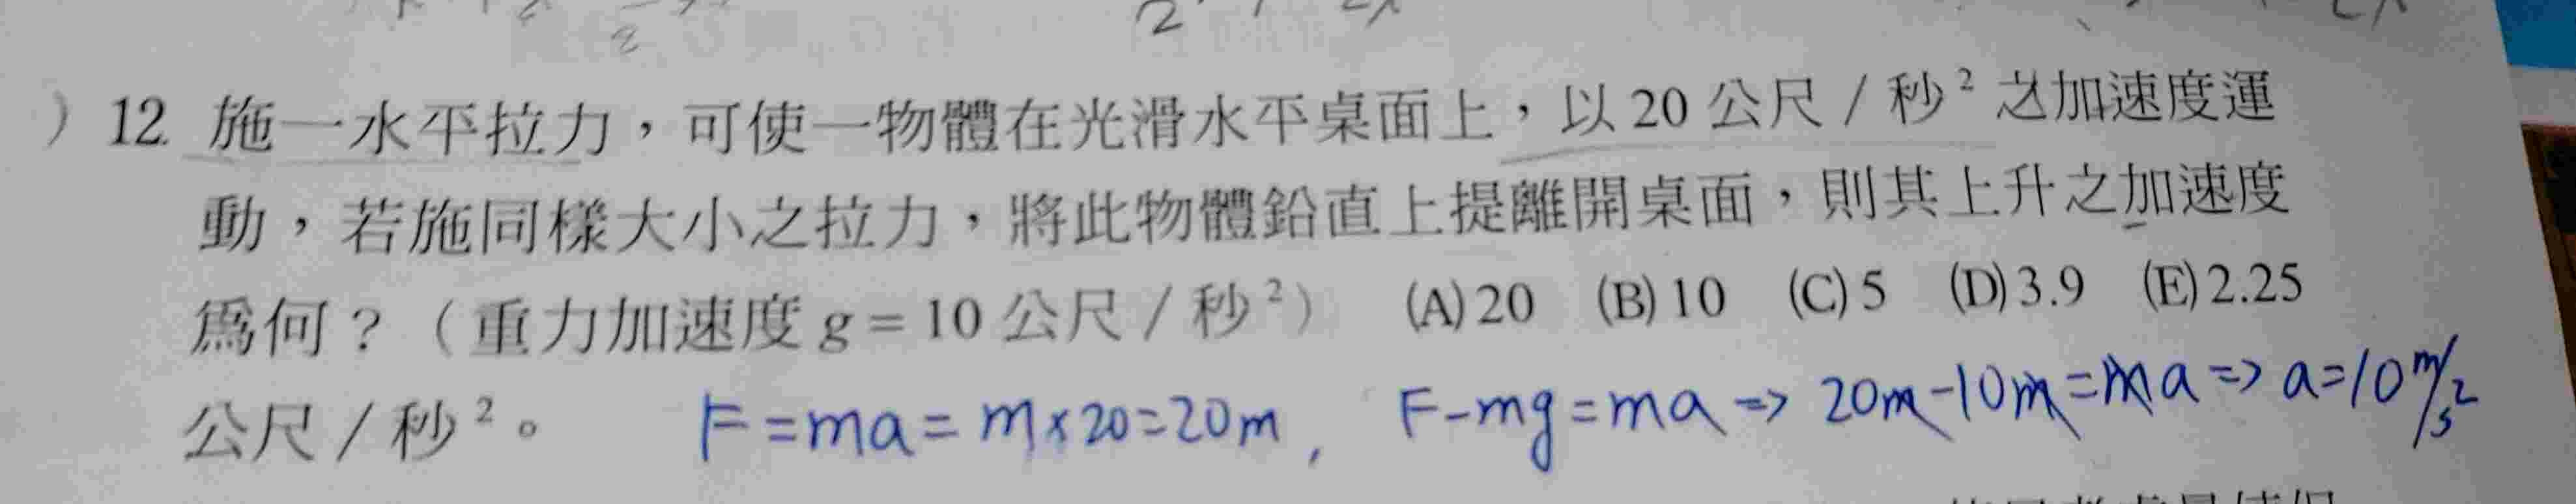 ) 12. 施一水平拉力，可使一物體在光滑水平桌面上，以 20 公尺 / 秒² 之加速度運
動，若施同樣大小之拉力，將此物體鉛直上提離開桌面，則其上升之加速度
爲何？（重力加速度 g = 10 公尺 / 秒²） (A) 20 (B) 10 (C) 5 (D) 3.9 (E) 2.25
公尺 / 秒²。 F = ma = m × 20 = 20m , F - mg = ma => 20m - 10m = ma => a = 10 m/s²